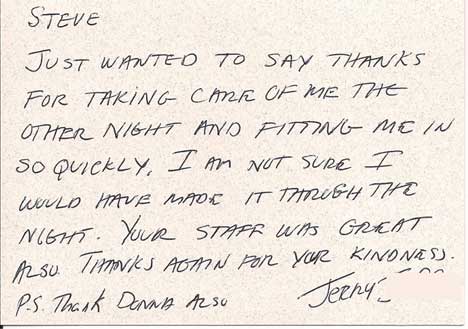 STEVE
JUST WANTED TO SAY THANKS
FOR TAKING CARE OF ME THE
OTHER NIGHT AND FITTING ME IN
SO QUICKLY. I AM NOT SURE I
WOULD HAVE MADE IT THROUGH THE
NIGHT. YOUR STAFF WAS GREAT
ALSO. THANKS AGAIN FOR YOUR KINDNESS.
P.S. Thank DONNA ALSO Jerry